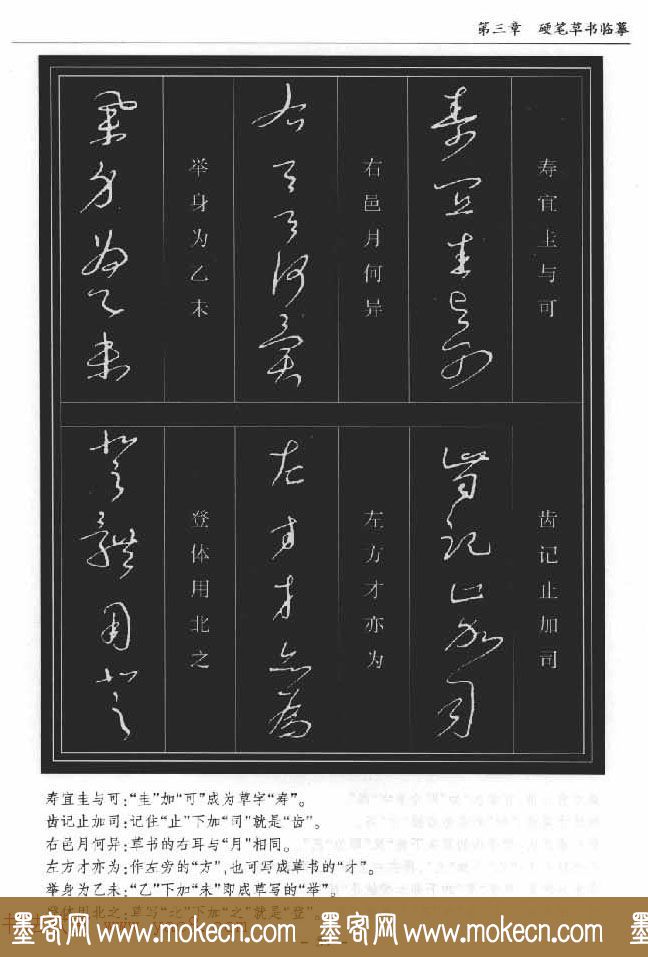 第三章 硬笔草书临摹
寿宜圭与可
右邑月何异
举身为乙未
齿记止加司
左方才亦为
登体用北之
寿宜圭与可:“圭”加“可”成为草字“寿”。
齿记止加司:记住“止”下加“司”就是“齿”。
右邑月何异:草书的右耳与“月”相同。
左方才亦为:作左旁的“方”,也可写成草书的“才”。
举身为乙未:“乙”下加“未”即成草写的“举”。
登体用北之:草写“北”下加“之”就是“登”。
墨客网 www.mokecn.com 墨客网 www.mokecn.com